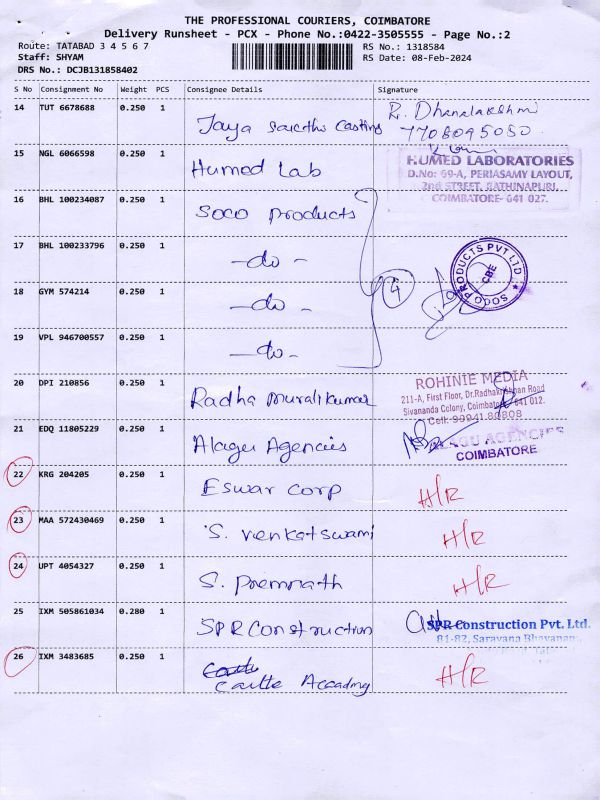 THE PROFESSIONAL COURIERS, COIMBATORE
Delivery Runsheet - PCX - Phone No.:0422-3505555 - Page No.:2
Route: TATABAD 3 4 5 6 7 RS No.: 1318584
Staff: SHYAM RS Date: 08-Feb-2024
DRS No.: DCJB131858402
S No Consignment No Weight PCS Consignee Details Signature
14 TUT 6678688 0.250 1 Jaya Casting R. Dhanalakshmi
7708095050
15 NGL 6066598 0.250 1 Humed Lab
HUMED LABORATORIES
D.No: 69-A, PERIASAMY LAYOUT,
2nd STREET, RATHINAPURI,
COIMBATORE- 641 027.
16 BHL 100234087 0.250 1 Soco Products
17 BHL 100233796 0.250 1 -do-
SOCO PRODUCTS PVT LTD
CBE
4
18 GYM 574214 0.250 1 -do-
19 VPL 946700557 0.250 1 -do-
20 DPI 210856 0.250 1 Radha Muralikumar
ROHINIE MEDIA
211-A, First Floor, Dr.Radhakrishnan Road
Sivananda Colony, Coimbatore 641 012.
Cell: 99941 80808
21 EDQ 11805229 0.250 1 Alagu Agencies
ALAGU AGENCIES
COIMBATORE
22 KRG 204205 0.250 1 Eswar Corp H/R
23 MAA 572430469 0.250 1 S. Venkatswami H/R
24 UPT 4054327 0.250 1 S. Premnath H/R
25 IXM 505861034 0.280 1 SPR Construction
SPR Construction Pvt. Ltd.
81-82, Saravana Bhavanam,
26 IXM 3483685 0.250 1 H/R